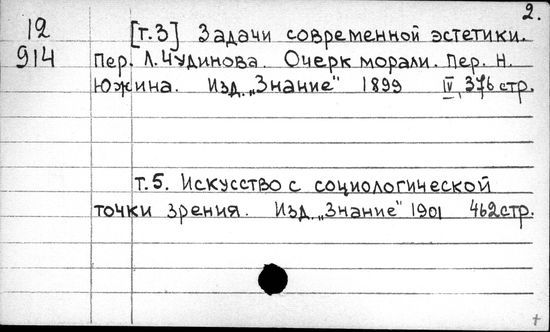 2.
12 [т.3] Задачи современной эстетики.
914 Пер. Л. Чудинова. Очерк морали. Пер. Н.
Южина. Изд. „Знание" 1899 IV, 376 стр.
т.5. Искусство с социологической
точки зрения. Изд. „Знание" 1901 462стр.